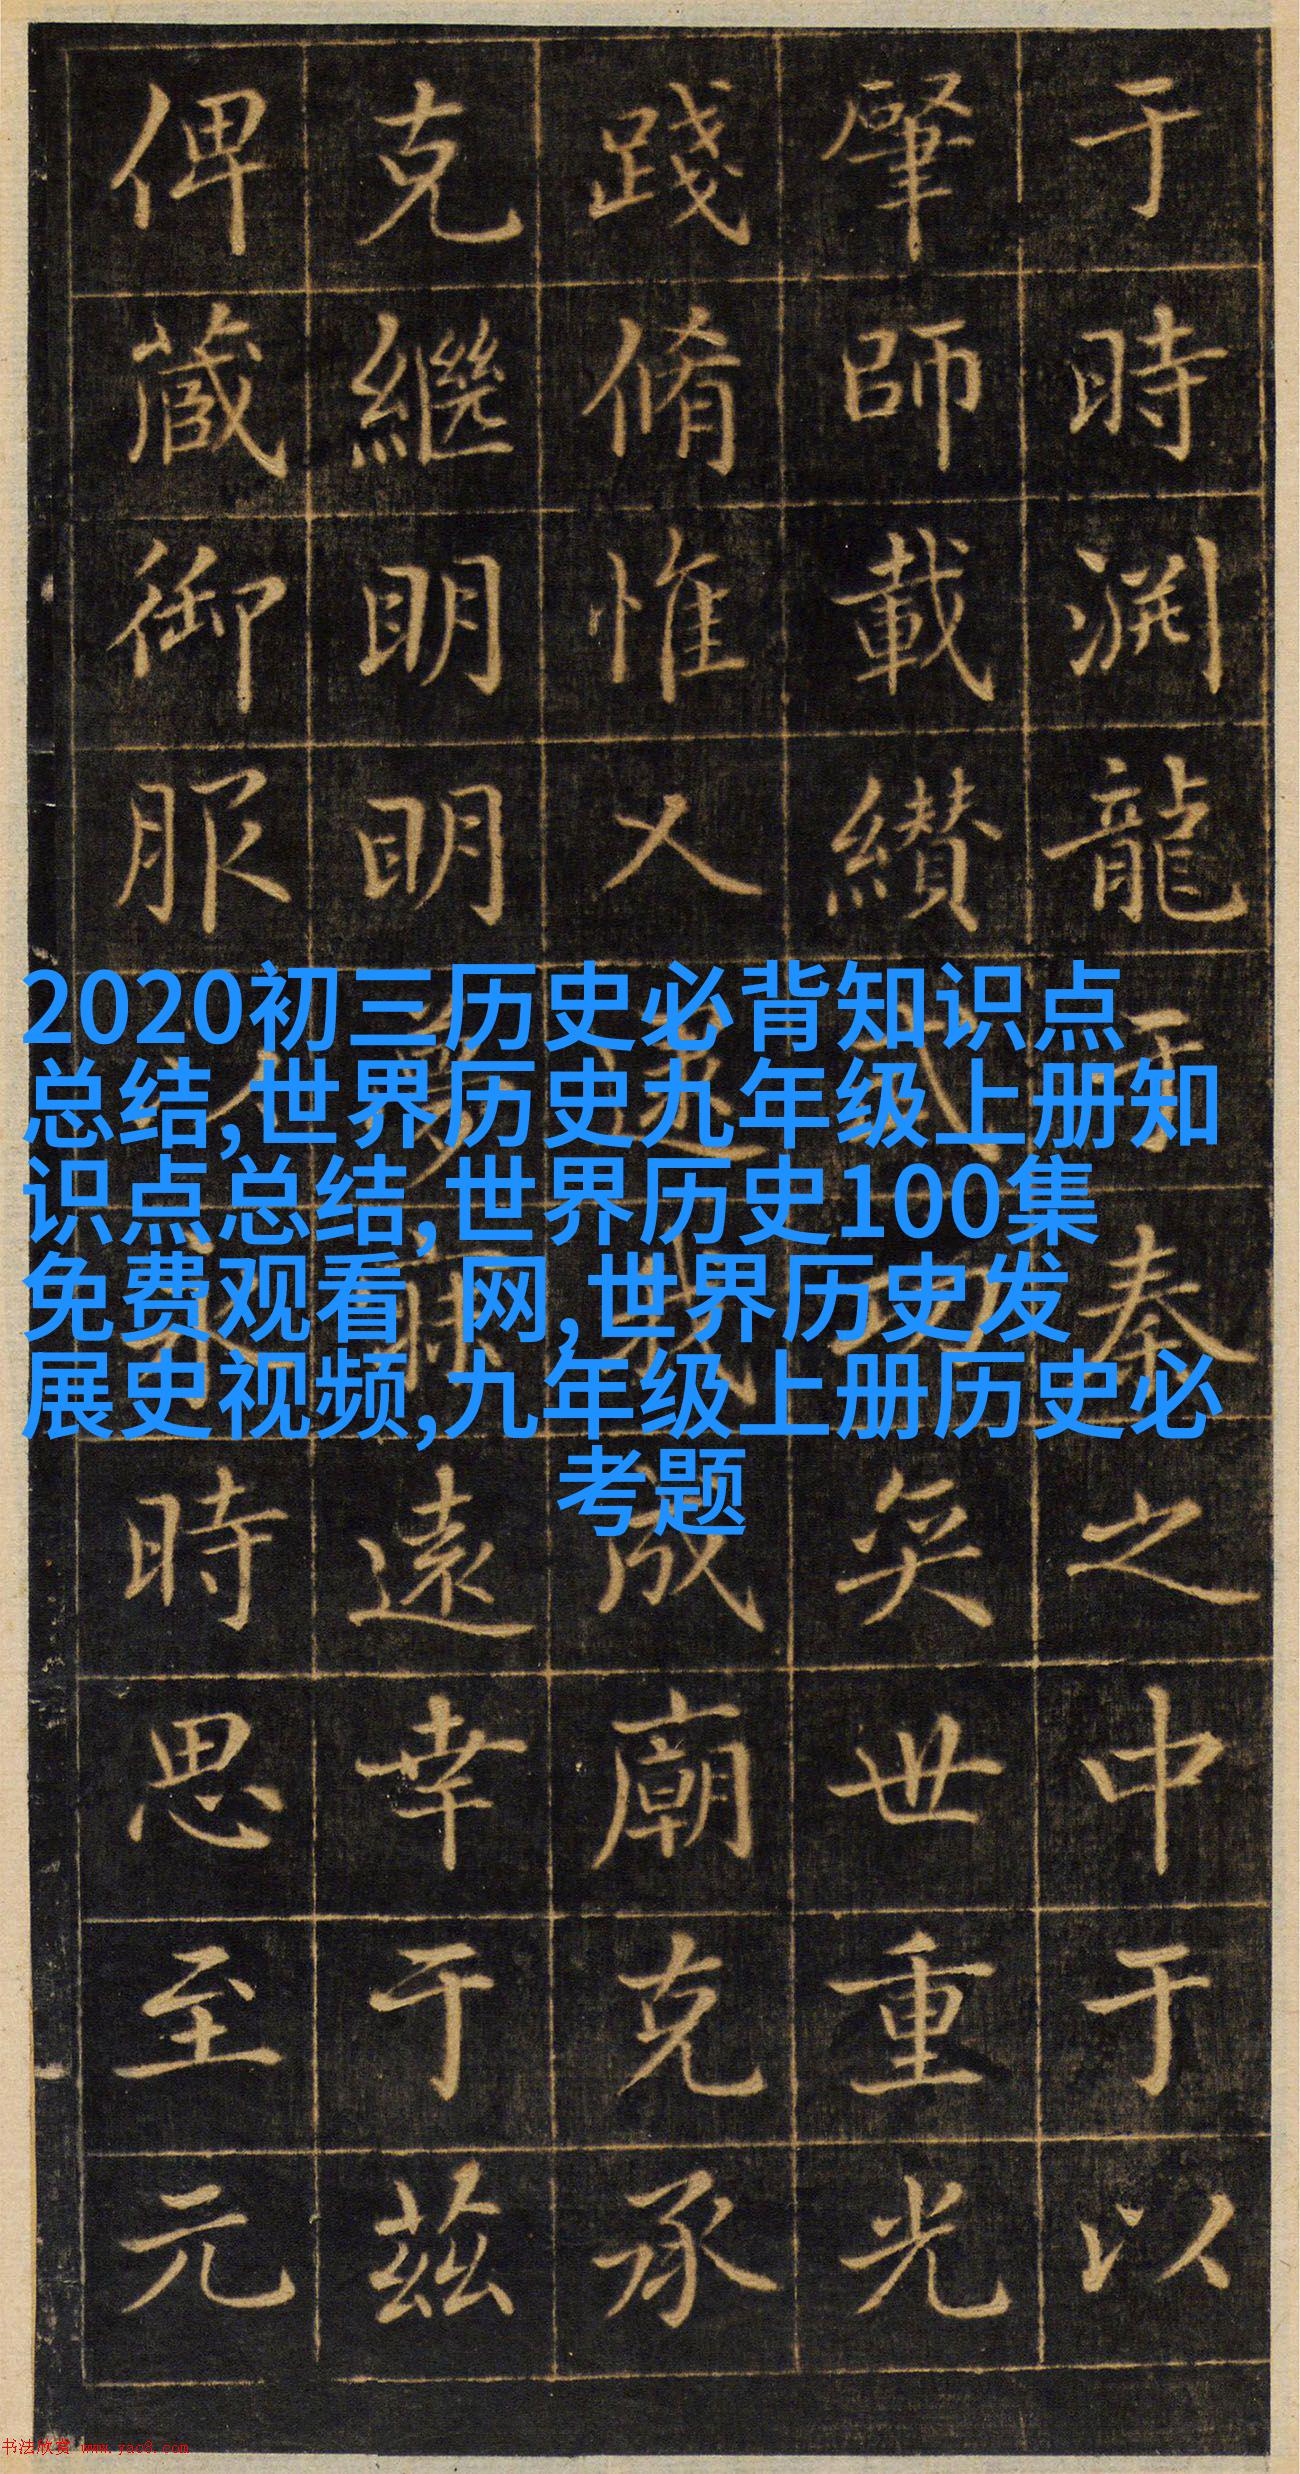 于時渊龍于秦之中于以
肇師載纘武功奕世重光
踐脩惟乂我成廟克承
克繼明明遠幸于茲
俾蕆御服時思至元
2020初三历史必背知识点
总结,世界历史九年级上册知
识点总结,世界历史100集
免费观看 网,世界历史发
展史视频,九年级上册历史必
考题
书法欣赏 www.yac8.com